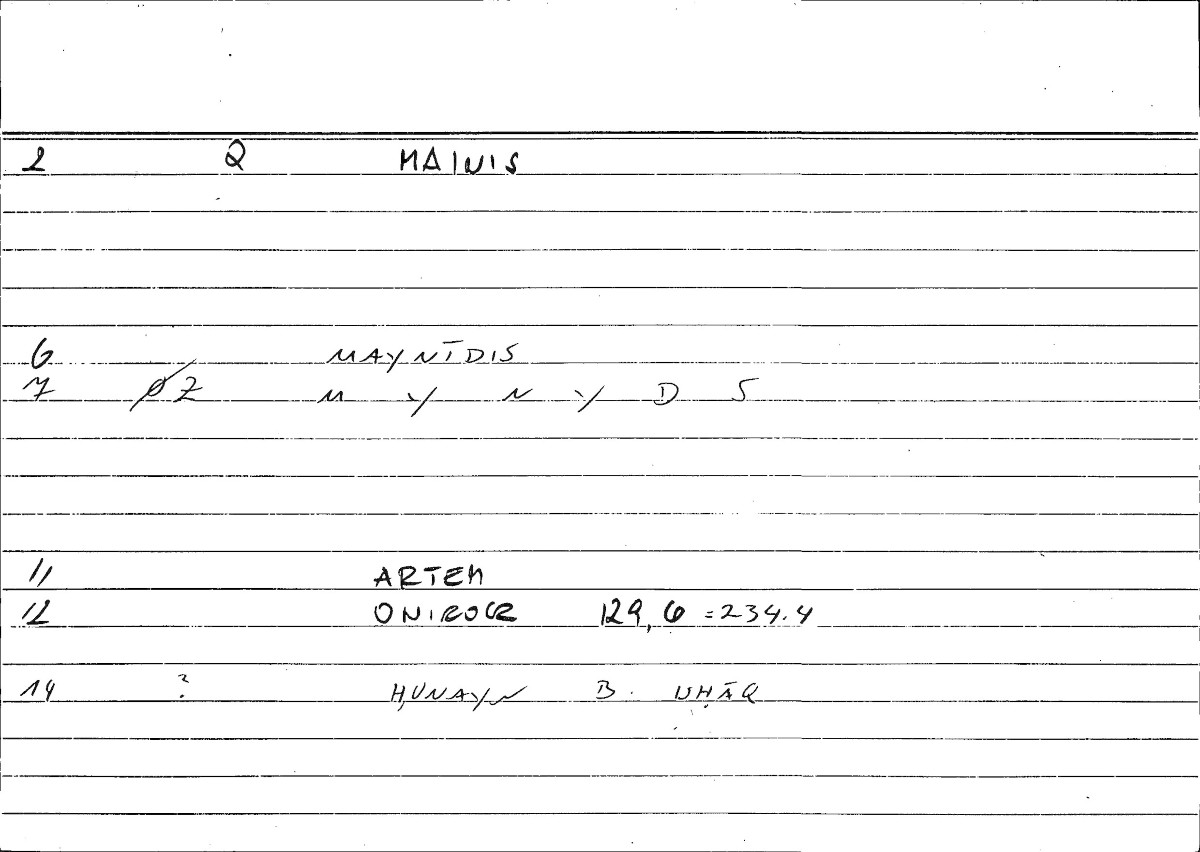 2 Q MAINIS
6 MAYNĪDIS
7 ØZ M Y N Y D S
11 ARTEM
12 ONIROCR 129,6 =234.4
14 ? ḤUNAYN B. ISḤĀQ